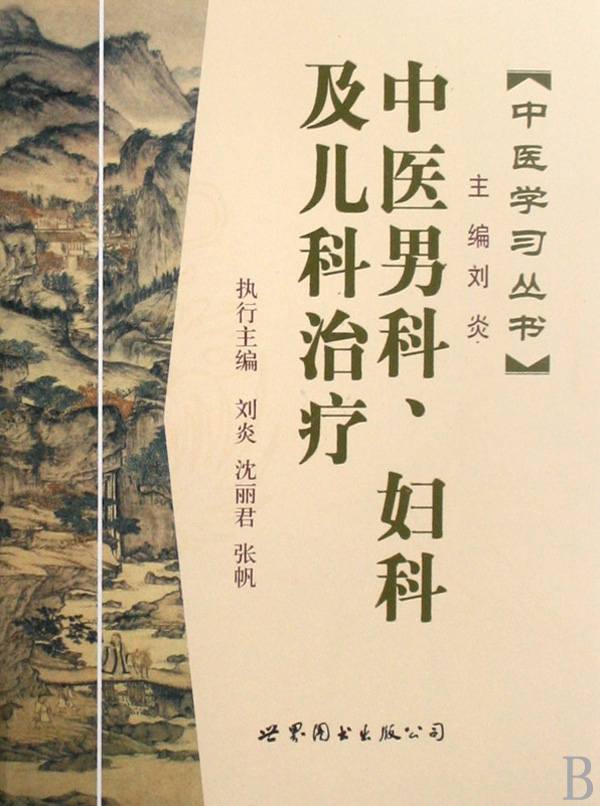 【中医学习丛书】
主编 刘炎
中医男科、妇科
及儿科治疗
执行主编 刘炎 沈丽君 张帆
世界图书出版公司
B